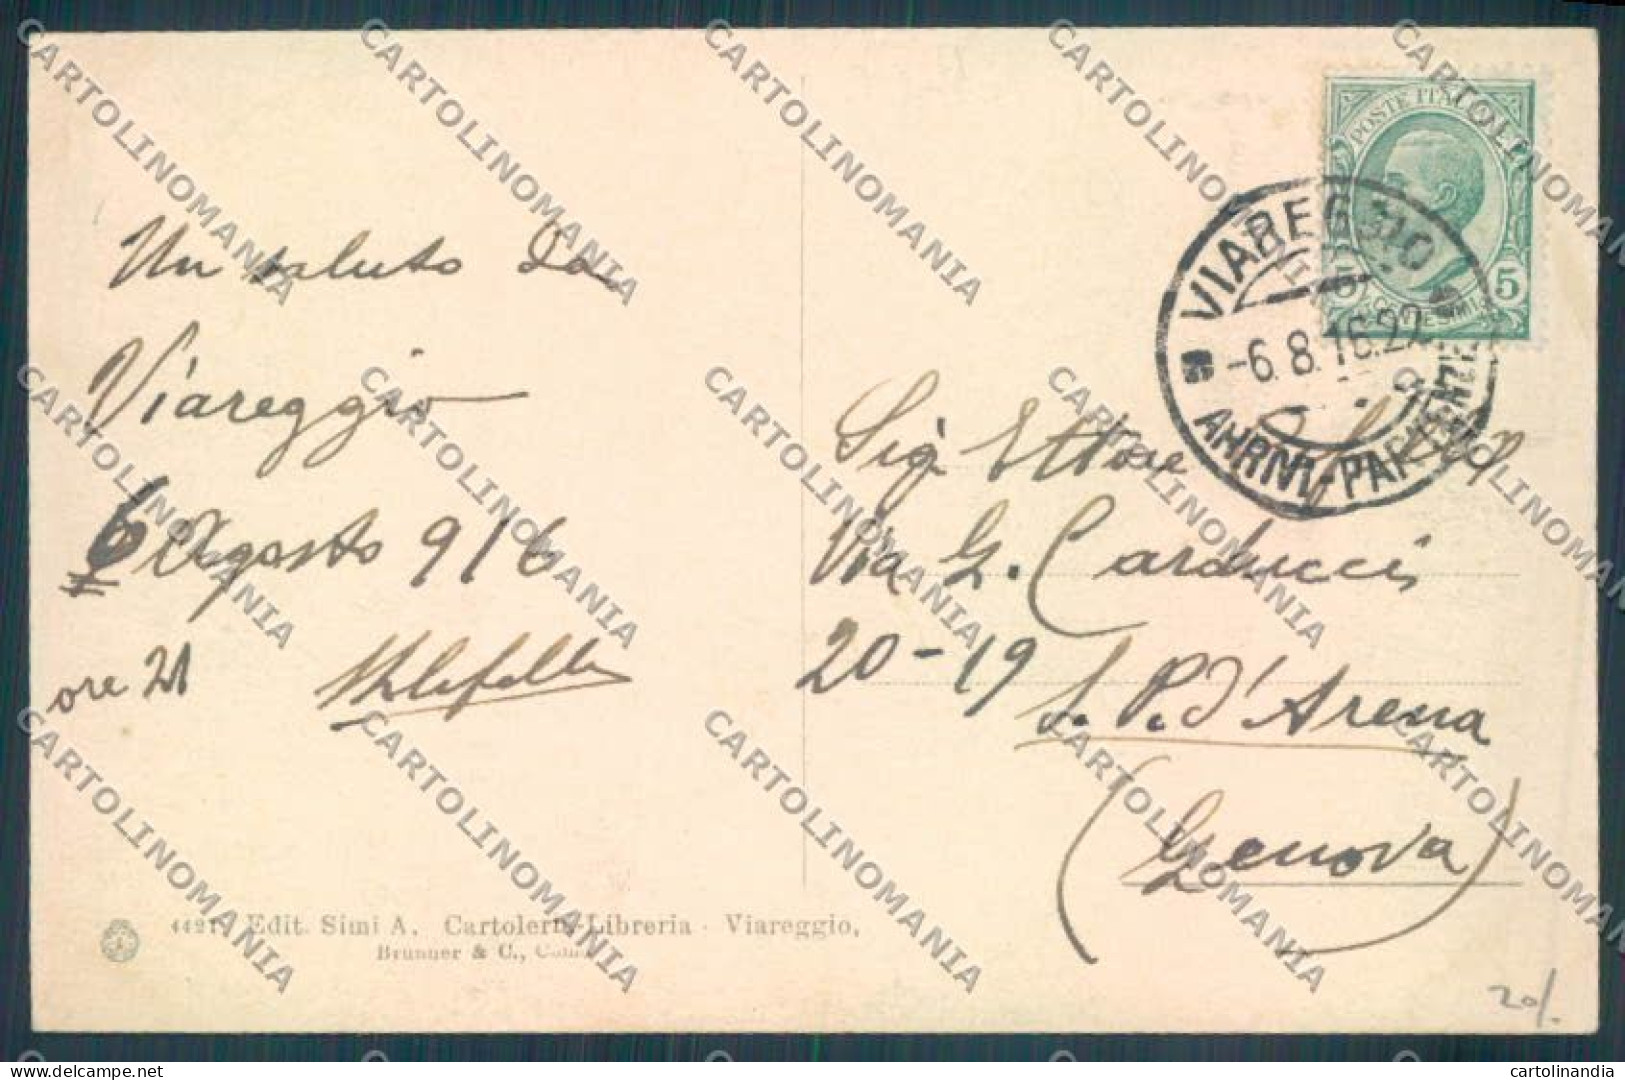 POSTE ITALIANE
5 5
VIAREGGIO
-6.8.16.22
ARRIVI-PARTENZE
Un saluto da
Viareggio
6 Agosto 916
ore 21
Sig Ettore
Via G. Carducci
20-19
S. P. d'Arena
(Genova)
4421 Edit. Simi A. Cartoleria-Libreria - Viareggio,
Brunner & C., Como
20/.
CARTOLINOMANIA
cartolinandia